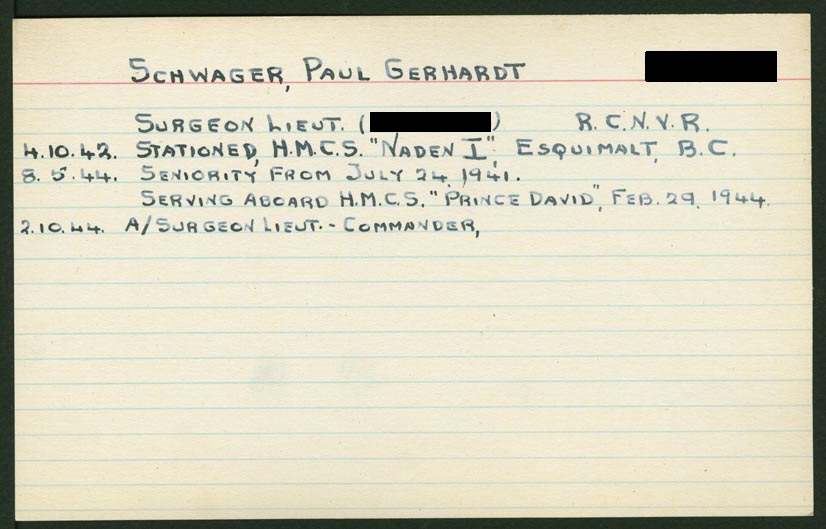 SCHWAGER, PAUL GERHARDT
SURGEON LIEUT. ( ) R.C.N.V.R.
4.10.42. STATIONED, H.M.C.S. "NADEN I", ESQUIMALT, B.C.
8.5.44. SENIORITY FROM JULY 24, 1941.
SERVING ABOARD H.M.C.S. "PRINCE DAVID", FEB. 29, 1944.
2.10.44. A/SURGEON LIEUT.-COMMANDER,